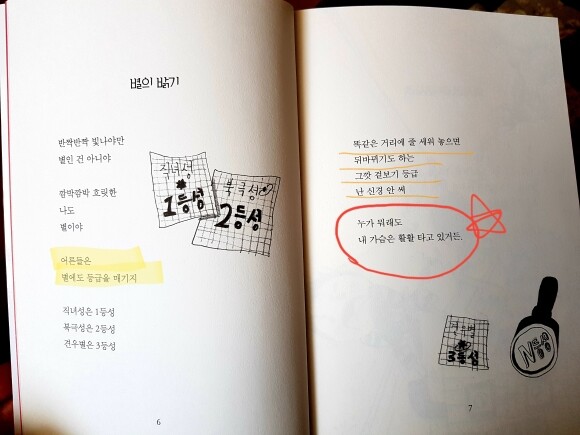 별의 밝기
반짝반짝 빛나야만
별인 건 아니야
깜박깜박 흐릿한
나도
별이야
어른들은
별에도 등급을 매기지
직녀성은 1등성
북극성은 2등성
견우별은 3등성
직녀성
1등성
북극성
2등성
6
똑같은 거리에 줄 세워 놓으면
뒤바뀌기도 하는
그깟 겉보기 등급
난 신경 안 써
누가 뭐래도
내 가슴은 활활 타고 있거든.
견우별
3등성
7